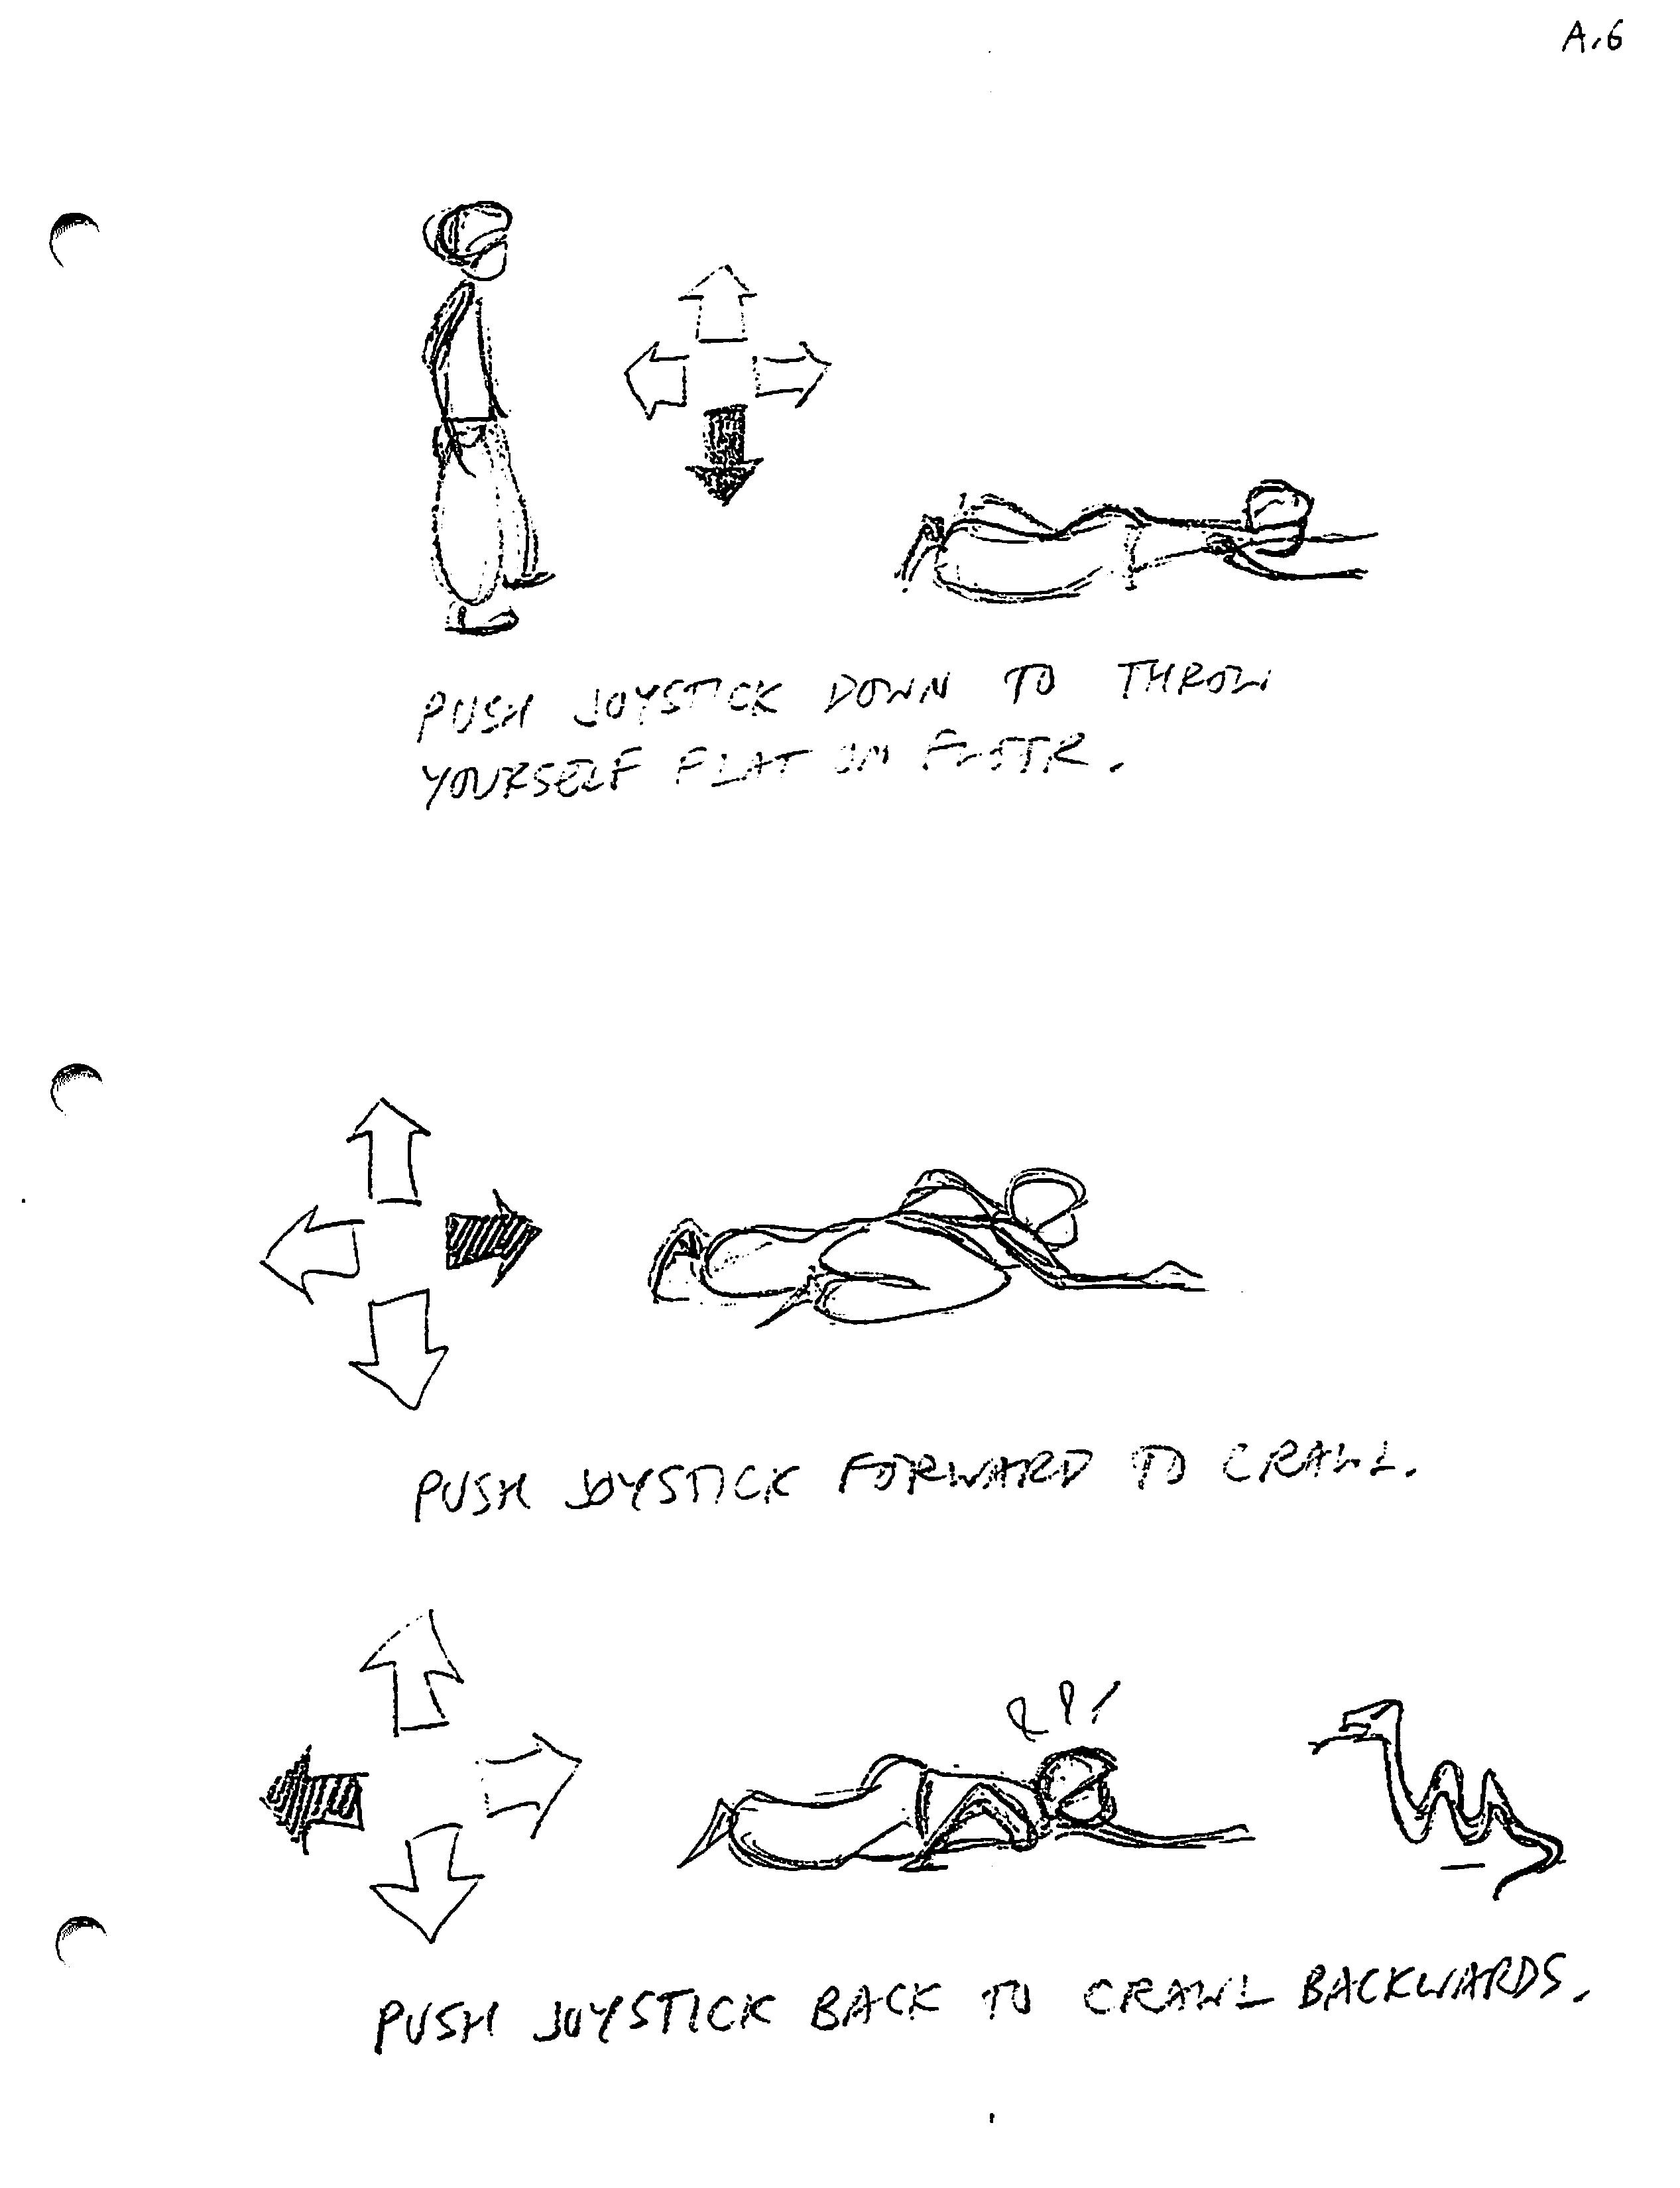 A.6
PUSH JOYSTICK DOWN TO THROW
YOURSELF FLAT ON FLOOR.
PUSH JOYSTICK FORWARD TO CRAWL.
??!
PUSH JOYSTICK BACK TO CRAWL BACKWARDS.